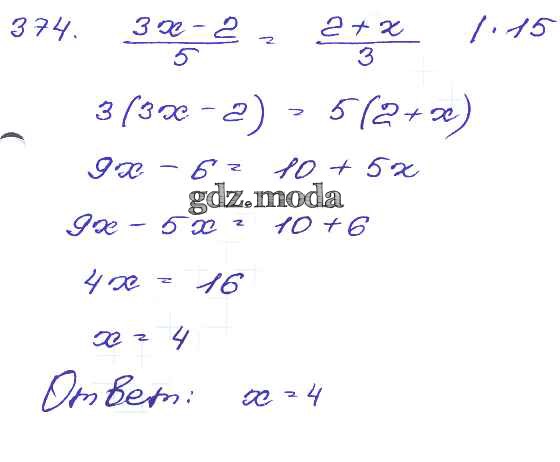 374. (3x - 2)/5 = (2 + x)/3 |·15
3(3x - 2) = 5(2 + x)
9x - 6 = 10 + 5x
gdz.moda
9x - 5x = 10 + 6
4x = 16
x = 4
Ответ: x = 4